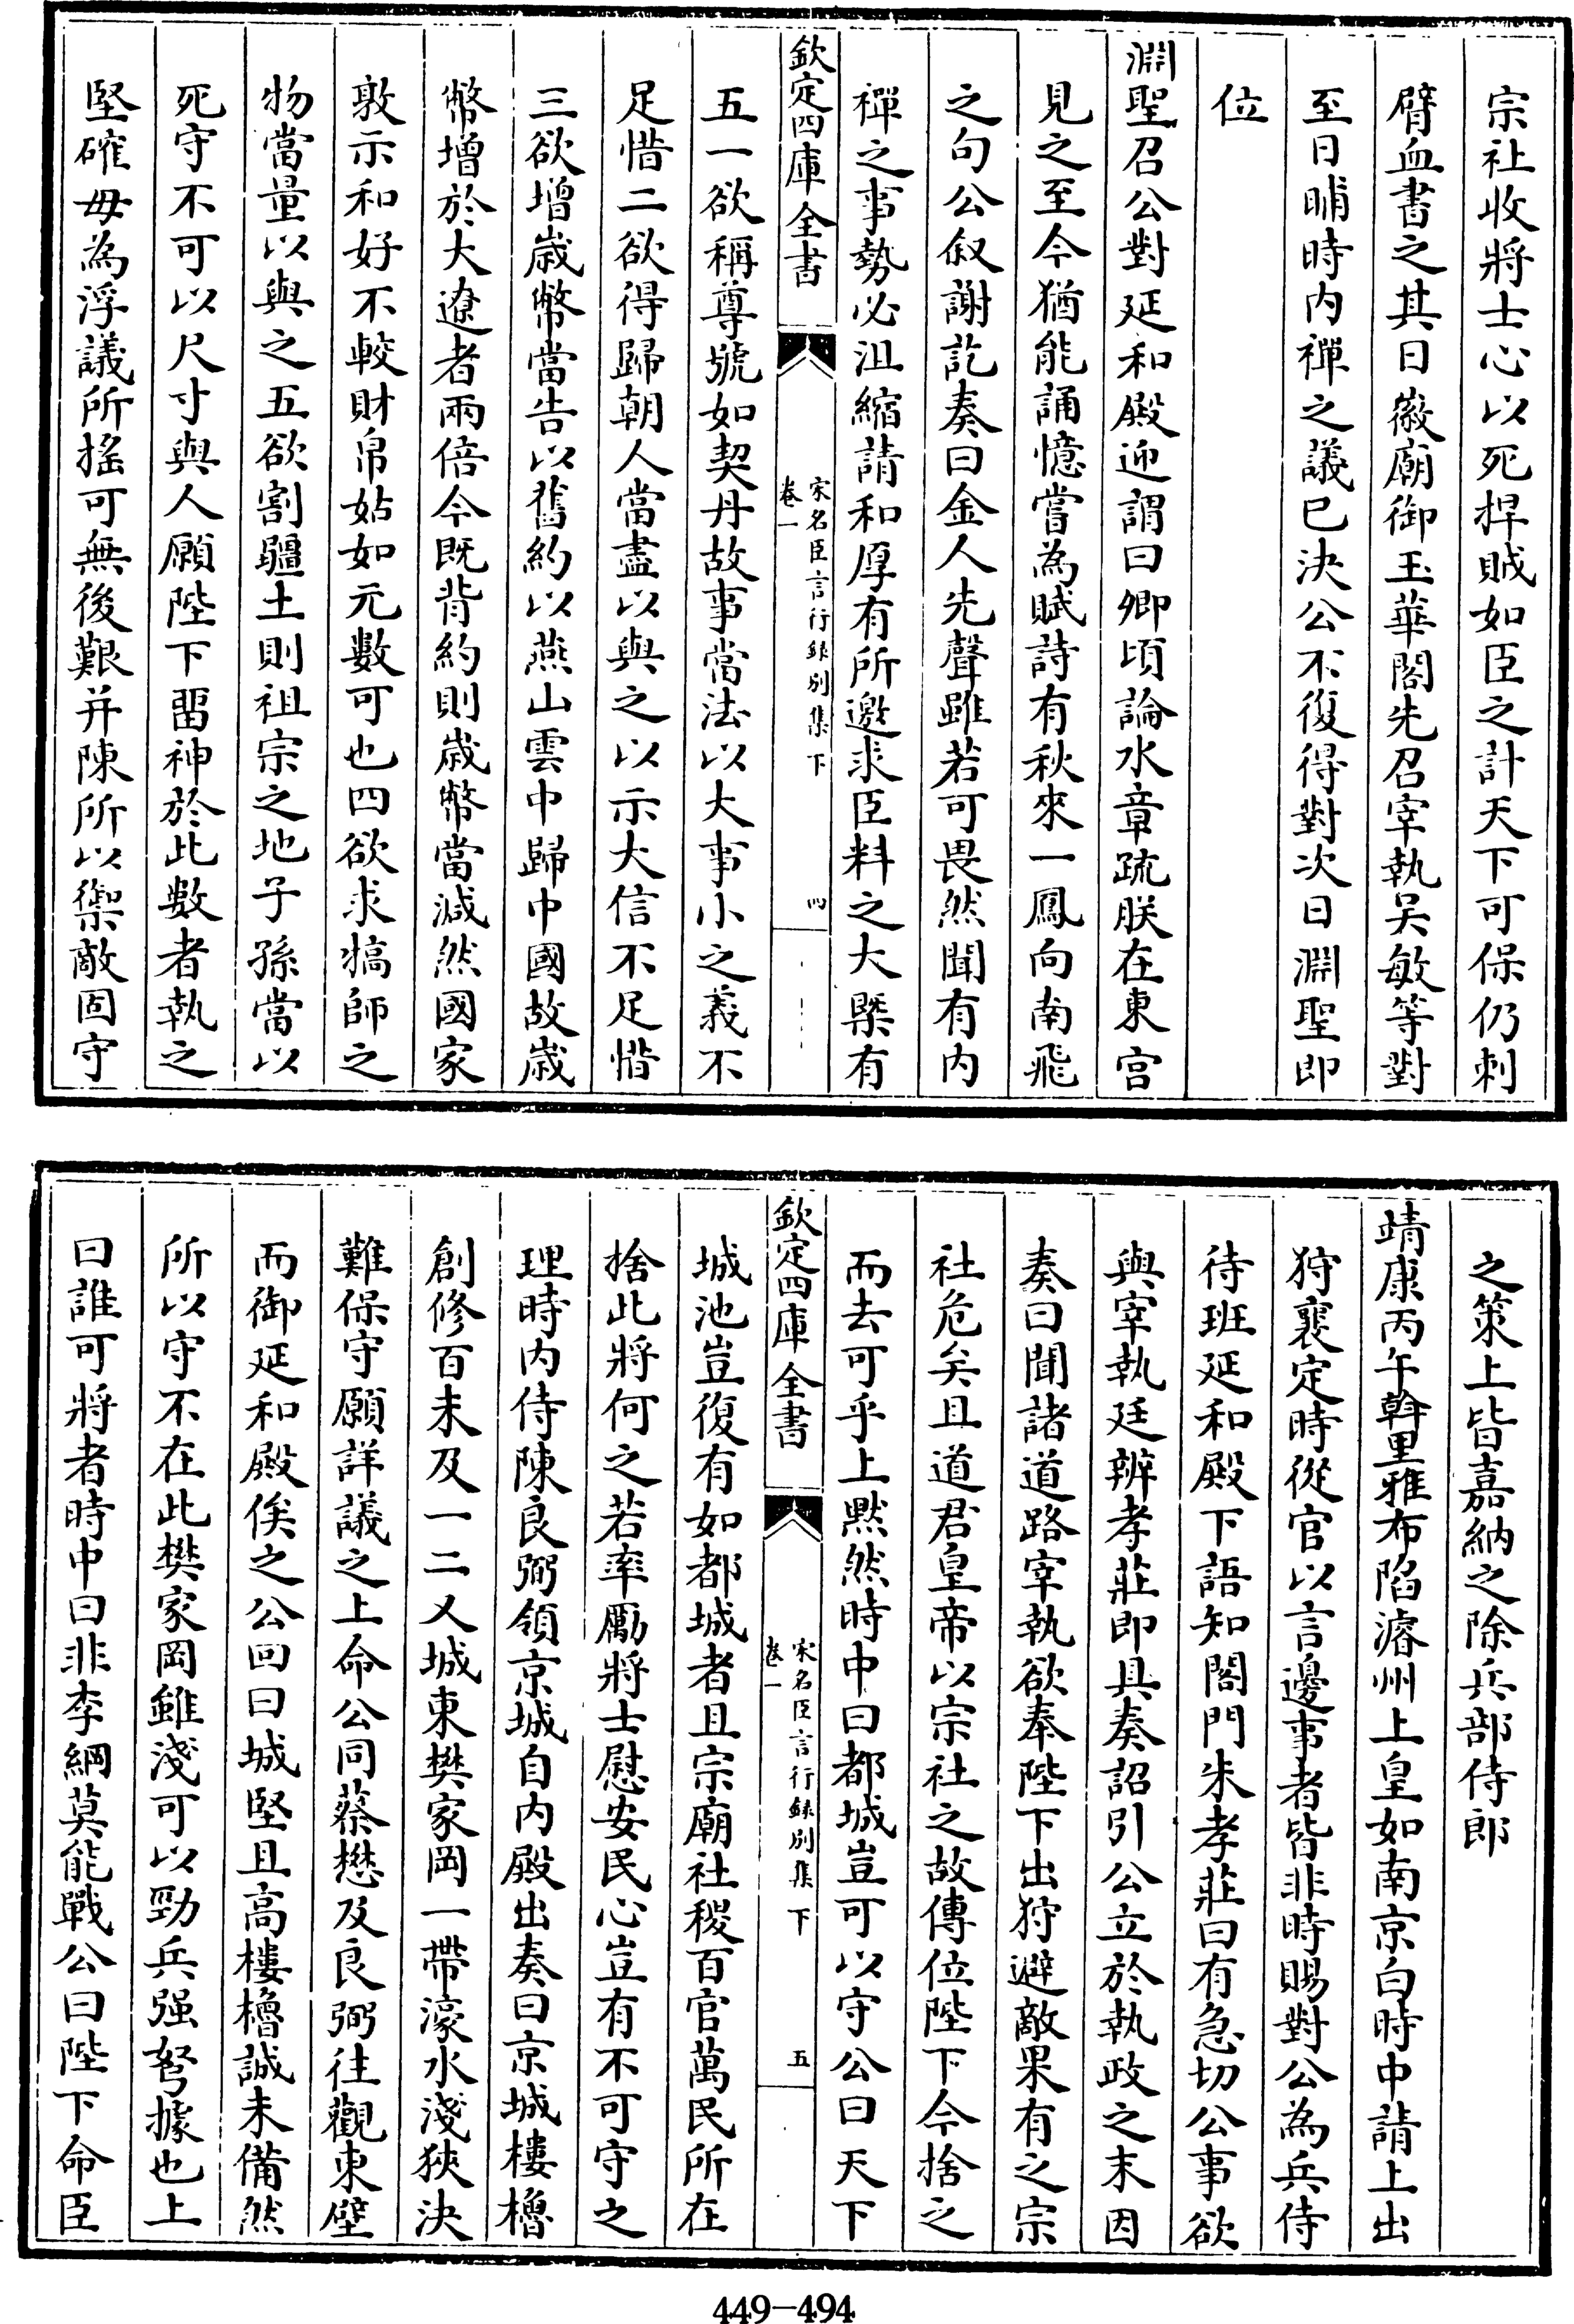 宗社收將士心以死捍賊如臣之計天下可保仍刺
臂血書之其日徽廟御玉華閣先召宰執吳敏等對
至日晡時内禪之議已決公不復得對次日淵聖即
位
淵聖召公對延和殿迎謂曰卿頃論水章疏朕在東宫
見之至今猶能誦憶嘗為賦詩有秋來一鳳向南飛
之句公叙謝訖奏曰金人先聲雖若可畏然聞有内
禪之事勢必沮縮請和厚有所邀求臣料之大槩有
欽定四庫全書
宋名臣言行録别集下
卷一
四
五一欲稱尊號如契丹故事當法以大事小之義不
足惜二欲得歸朝人當盡以與之以示大信不足惜
三欲增歲幣當告以舊約以燕山雲中歸中國故歲
幣增於大遼者兩倍今既背約則歲幣當減然國家
敦示和好不較財帛姑如元數可也四欲求犒師之
物當量以與之五欲割疆土則祖宗之地子孫當以
死守不可以尺寸與人願陛下留神於此數者執之
堅確毋為浮議所搖可無後艱并陳所以禦敵固守
之策上皆嘉納之除兵部侍郎
靖康丙午斡里雅布陷濬州上皇如南京白時中請上出
狩襄定時從官以言邊事者皆非時賜對公為兵侍
待班延和殿下語知閤門朱孝莊曰有急切公事欲
與宰執廷辨孝莊即具奏詔引公立於執政之末因
奏曰聞諸道路宰執欲奉陛下出狩避敵果有之宗
社危矣且道君皇帝以宗社之故傳位陛下今捨之
而去可乎上黙然時中曰都城豈可以守公曰天下
欽定四庫全書
宋名臣言行録别集下
卷一
五
城池豈復有如都城者且宗廟社稷百官萬民所在
捨此將何之若率勵將士慰安民心豈有不可守之
理時内侍陳良弼領京城自内殿出奏曰京城樓櫓
創修百未及一二又城東樊家岡一帶濠水淺狹決
難保守願詳議之上命公同蔡懋及良弼往觀東壁
而御延和殿俟之公回曰城堅且高樓櫓誠未備然
所以守不在此樊家岡雖淺可以勁兵强弩據也上
曰誰可將者時中曰非李綱莫能戰公曰陛下命臣
449-494